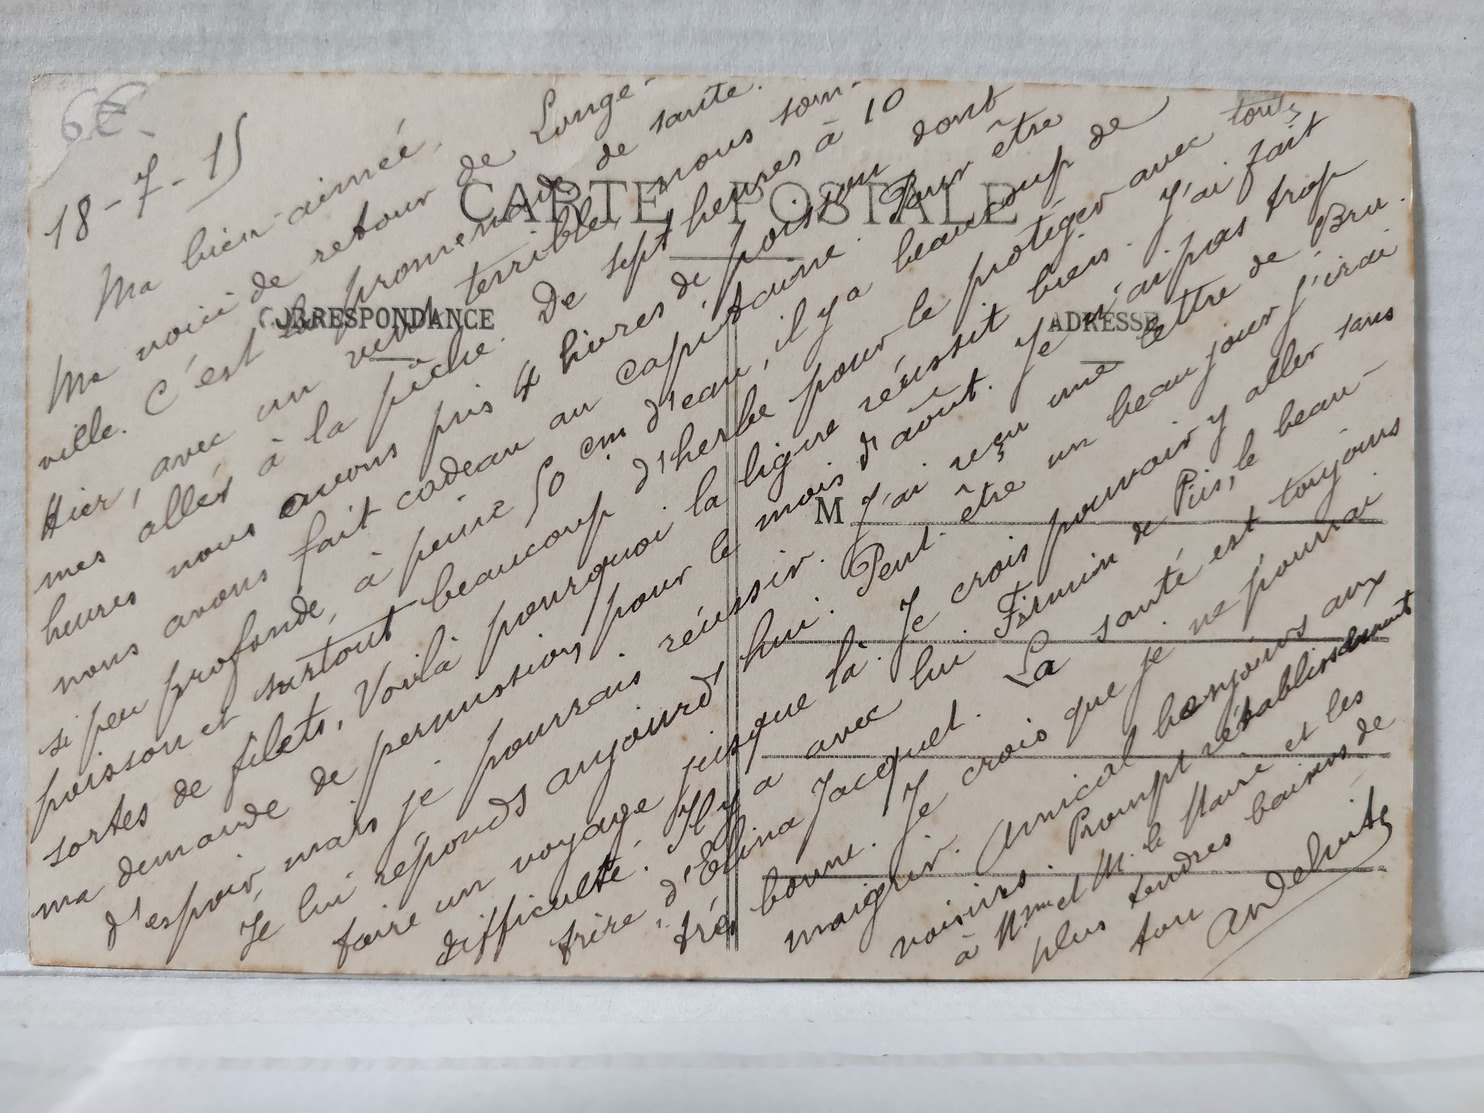 6€.
18-7-15
CARTE POSTALE
CORRESPONDANCE
ADRESSE
M
Ma bien-aimée,
Me voici de retour de Longe-
ville. C'est la promenade de santé.
Hier, avec un vent terrible, nous som-
mes allés à la pêche. De sept heures à 10
heures nous avons pris 4 livres de poisson dont
nous avons fait cadeau au capitaine. Pour être
si peu profonde, à peine 50 cm d'eau, il y a beaucoup de
poisson et surtout beaucoup d'herbe pour le protéger avec toutes
sortes de filets, Voilà pourquoi la ligne réussit bien. J'ai fait
ma demande de permission pour le mois d'août. Je n'ai pas trop
d'espoir, mais je pourrais réussir. J'ai reçu une lettre de Bru.
Je lui réponds aujourd'hui. Peut-être un beau jour j'irai
faire un voyage jusque là. Je crois pouvoir y aller sans
difficulté. Il y a avec lui Firmin de Puis, le beau-
frère d'Elina Jacquel. La santé est toujours
très bonne. Je crois que je ne pourrai
maigrir. Amical bonjours aux
voisins. Prompt rétablissement
à Mme et M. le Maire et les
plus tendres baisers de
ton